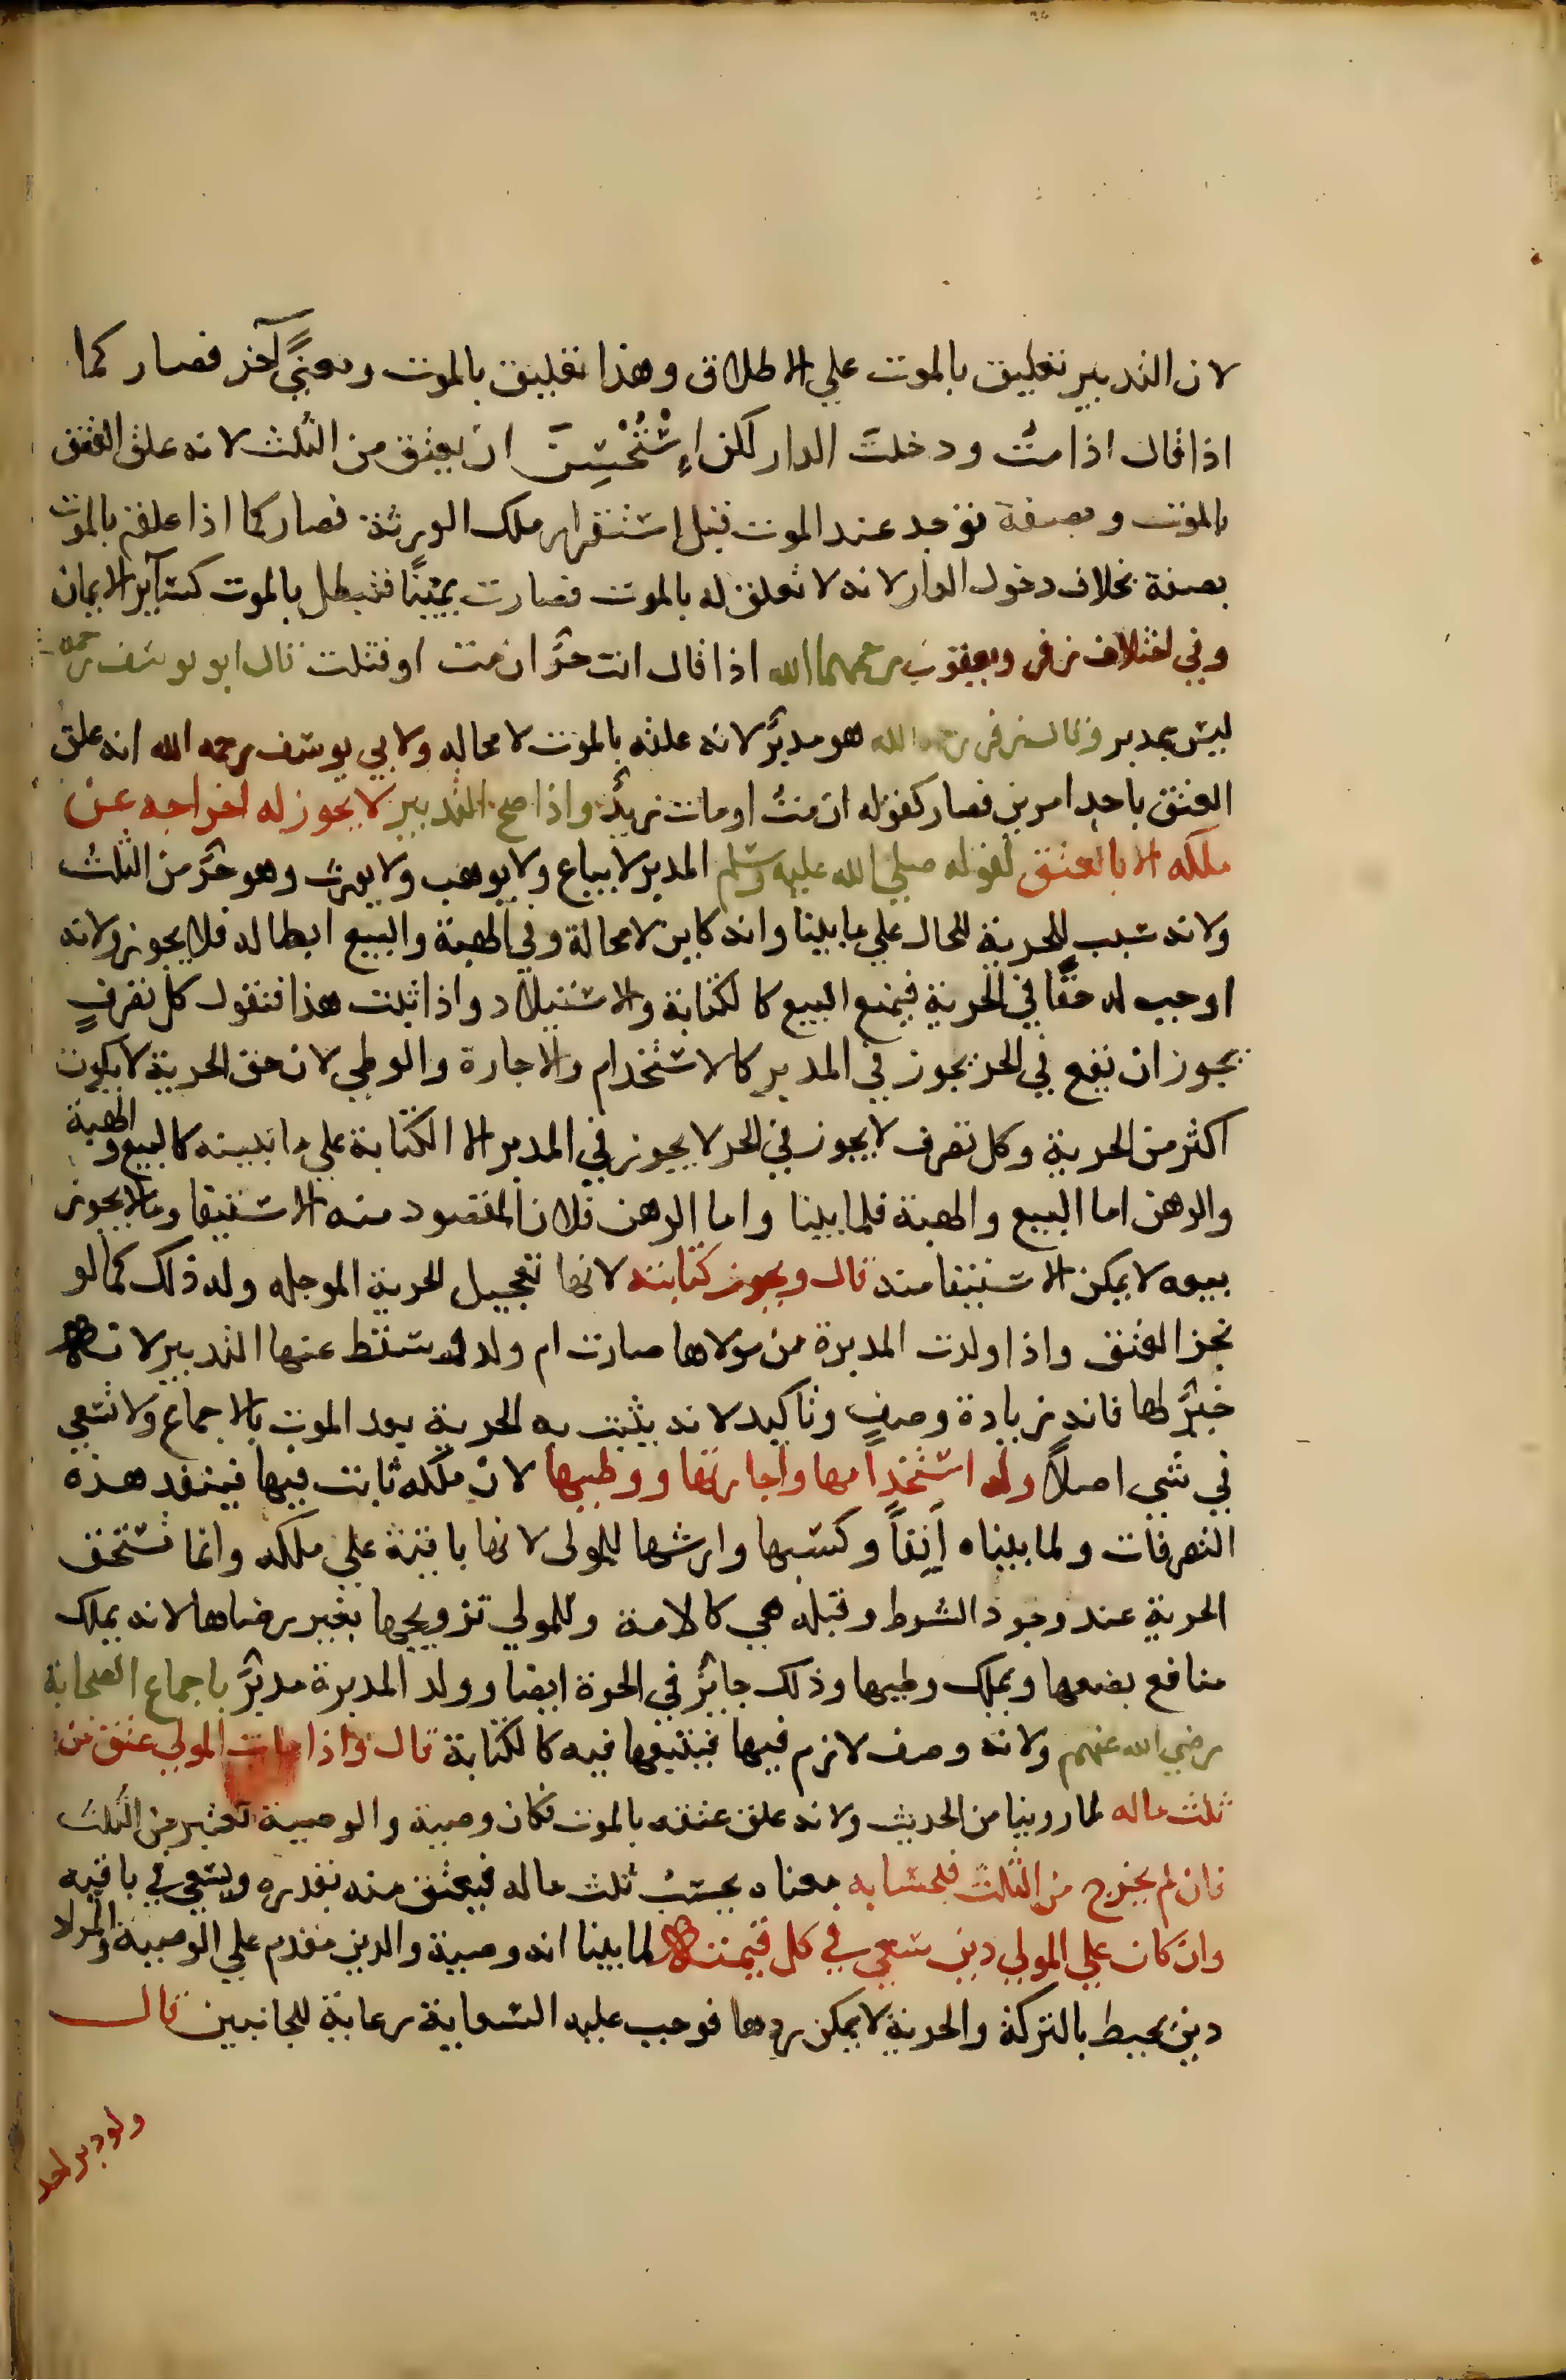 لان التدبير تعليق بالموت علي الاطلاق وهذا تعليق بالموت ومعنًي آخر فصار كما
اذا قال اذا متُّ ودخلتَ الدار لكن اِسْتُحْسِنَ ان يعتق من الثلث لانه علق العتق
بالموت وبصفة توجد عند الموت قبل استقرار ملك الورثة فصار كما اذا علقه بالموت
بصفة بخلاف دخول الدار لانه لا تعلق له بالموت فصارت يمينًا فتبطل بالموت كسآير الايمان
وفي اختلاف زفر ويعقوب رحمهما الله اذا قال انت حرٌّ ان مت او قتلت قال ابو يوسف رحمه
ليس بمدبر وقال زفر رحمه الله هو مدبرٌ لانه علقه بالموت لا محاله ولابي يوسف رحمه الله انه علق
العتق باحد امرين فصار كقوله ان متُّ او مات زيدٌ واذا صح التدبير لا يجوز له اخراجه عن
ملكه الا بالعتق لقوله صلي الله عليه وسلم المدبر لا يباع ولا يوهب ولا يورث وهو حرٌّ من الثلث
ولانه سبب للحرية للحال علي ما بينا وانه كاين لا محالة وفي الهبة والبيع ابطاله فلا يجوز ولانه
اوجب له حقًّا في الحرية فيمنع البيع كالكتابة والاستيلاد واذا ثبت هذا فنقول كل تصرفٍ
يجوز ان يقع في الحر يجوز في المدبر كالاستخدام والاجارة والوطي لان حق الحرية لا يكون
اكثر من الحرية وكل تصرف لا يجوز في الحر لا يجوز في المدبر الا الكتابة علي ما نبينه كالبيع والهبة
والرهن اما البيع والهبة فلما بينا واما الرهن فلان المقصود منه الاستيفا وما لا يجوز
بيعه لا يمكن الاستيفا منه قال ويجوز كتابته لانها تعجيل الحرية الموجله وله ذلك كما لو
نجز العتق واذا ولدت المدبرة من مولاها صارت ام ولد له وسقط عنها التدبير لانه
خيرٌ لها فانه زيادة وصفٍ وتاكيد لانه يثبت به الحرية بعد الموت بالاجماع ولا تسعي
في شي اصلاً وله استخدامها واجارتها ووطيها لان ملكه ثابت فيها فينفد هذه
التصرفات ولما بيناه آنفاً وكسبها وارشها للمولي لانها باقية علي ملكه وانما تستحق
الحرية عند وجود الشرط وقبله هي كالامة وللمولي تزويجها بغير رضاها لانه يملك
منافع بضعها ويملك وطيها وذلك جايزٌ في الحرة ايضا وولد المدبرة مدبرٌ باجماع الصحابة
رضي الله عنهم ولانه وصف لازم فيها فيتبعها فيه كالكتابة قال واذا مات المولي عتق من
ثلث ماله لما روينا من الحديث ولانه علق عتقه بالموت فكان وصية والوصية تعتبر من الثلث
فان لم يخرج من الثلث فبحسابه معناه يحسب ثلث ماله فيعتق منه بقدره ويسعي في باقيه
وان كان علي المولي دين سعي في كل قيمته لما بينا انه وصية والدين مقدم علي الوصية والمولا
دين يحيط بالتركة والحرية لا يمكن ردها فوجب عليه السعاية رعاية للجانبين قال
ولو دبر احد